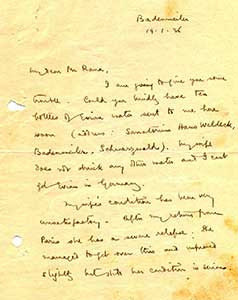 Badenweiler
19.1.36
My dear Mr Rana,
I am going to give you some
trouble. Could you kindly have ten
bottles of Evian water sent to me here
soon (address: Sanatorium Haus Waldeck,
Badenweiler, Schwarzwald). My wife
does not drink any other water and I can't
get Evian in Germany.
My wife's condition has been very
unsatisfactory. After my return from
Paris she had a severe relapse. She
managed to get over this and improved
slightly but still her condition is serious.